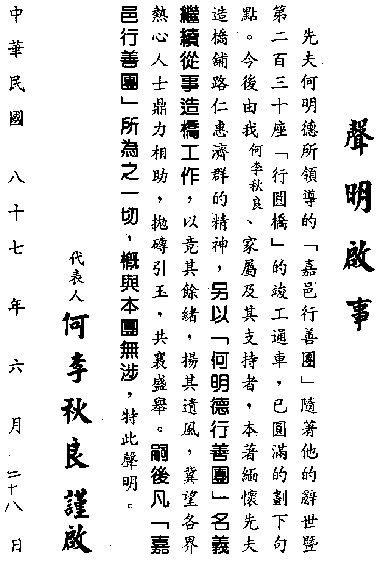 聲明啟事
先夫何明德所領導的「嘉邑行善團」隨著他的辭世暨
第二百三十座「行圓橋」的竣工通車，已圓滿的劃下句
點。今後由我何李秋良、家屬及其支持者，本著緬懷先夫
造橋舖路仁惠濟群的精神，另以「何明德行善團」名義
繼續從事造橋工作，以竟其餘緒，揚其遺風，冀望各界
熱心人士鼎力相助，拋磚引玉，共襄盛舉。嗣後凡「嘉
邑行善團」所為之一切，概與本團無涉，特此聲明。
代表人 何李秋良 謹啟
中華民國 八十七 年 六 月 二十八 日